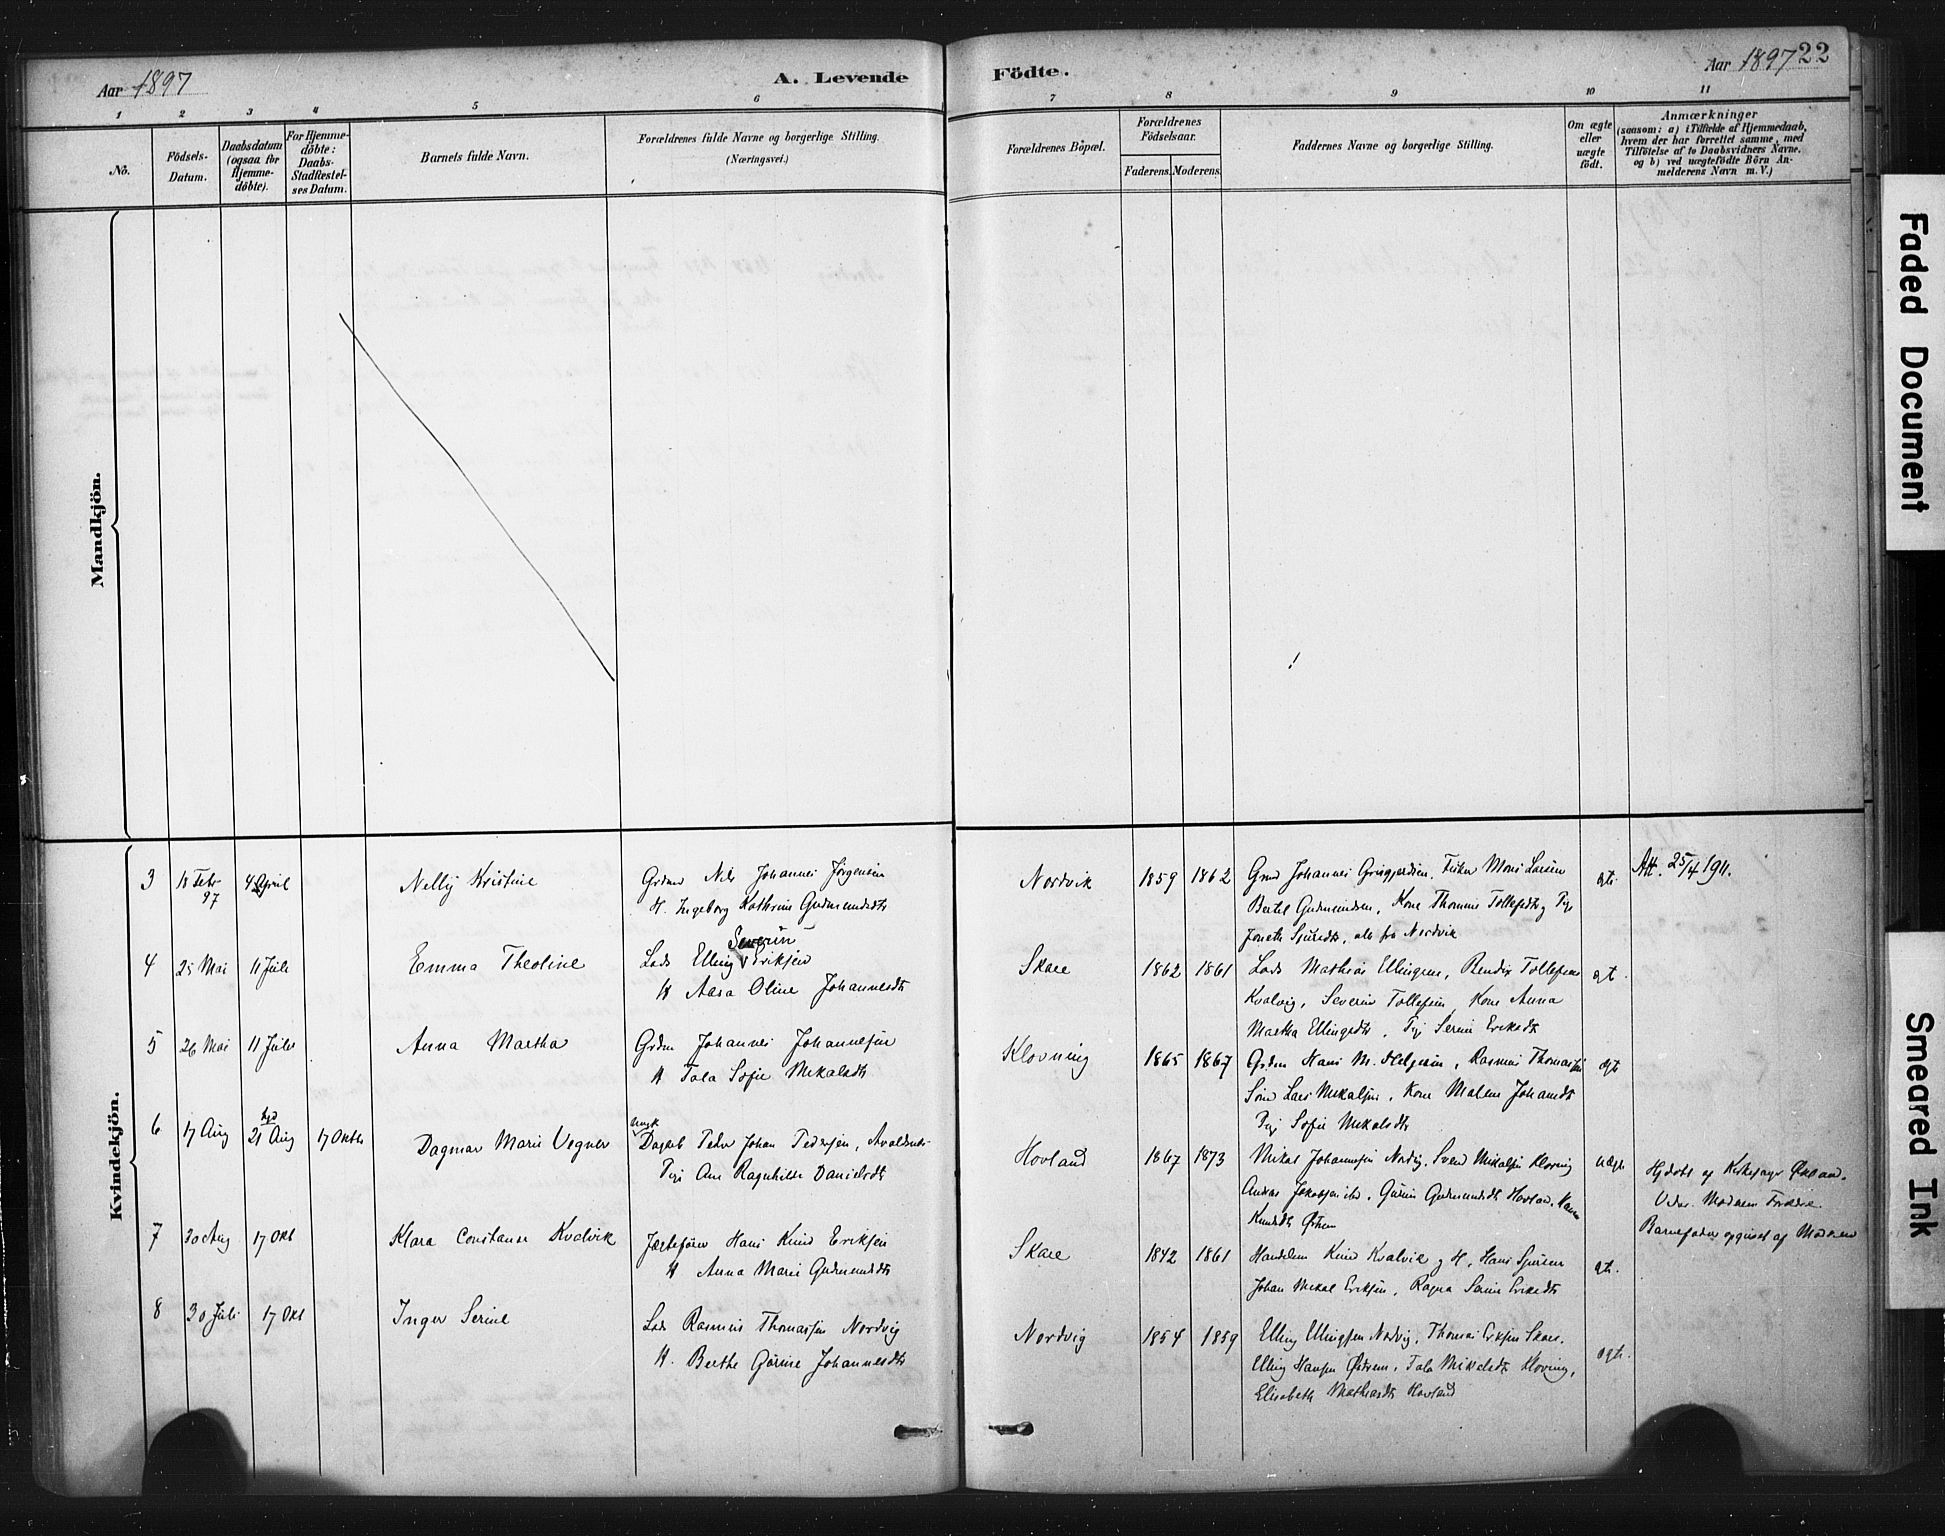 Aar 1897
A. Levende
Födte.
Aar 1897
22
1 2 3 4 5 6 7 8 9 10 11
No.
Födsels-
Datum.
Daabsdatum
(ogsaa for
Hjemme-
döbte).
For Hjemme-
döbte:
Daabs-
Stadfæstel-
ses Datum.
Barnets fulde Navn.
Forældrenes fulde Navne og borgerlige Stilling.
(Næringsvei.)
Forældrenes Bopæl.
Forældrenes
Födselsaar.
Faderens. Moderens.
Faddernes Navne og borgerlige Stilling.
Om ægte
eller
uægte
födt.
Anmærkninger
(saasom: a) i Tilfælde af Hjemmedaab,
hvem der har forrettet samme, med
Tilföielse af to Daabsvidners Navne.
og b) ved uægtefödte Börn An-
melderens Navn m. V.)
Mandkjön.
Kvindekjön.
3 18 Febr 97 4 April Nelly Kristine
Grdmd Nils Johannes Jörgensen
H. Ingeborg Kathrine Gudmundsdt
Nordvik 1859 1862
Johannes Fisker Mons Larsen
Bertel Gudmundsen, Kone Thomine Tollefsdt og Pige
Sjursdt, alle fra Nordvik
ægte.
Att. 25/4 1911.
4 25 Mai 11 Juli Emma Theoline
Severin
Lods Elling Eriksen
H Aasa Oline Johannesdt
Skare 1862 1861
Lods Mathias Ellingsen, Bendix Tollefsen
Kvalvig, Severin Tollefsen, Kone Anna
Martha Ellingsdt, Pige Serine Eriksdt
ægt.
5 26 Mai 11 Juli Anna Martha
Grdm Johannes Johannesen
H Tala Sofie Mikalsdt
Klovning 1865 1867
Grdm Hans M. Helgesen, Rasmus Thomassen
Lars Mikalsen, Kone Malene Johansdt
Pige Sofie Mikalsdt
ægt
6 17 Aug 21 Aug 17 Oktbr Dagmar Marie Vegner
ungk
Dagarb Peder Johan Pedersen, Avaldsnes
Pige Ane Ragnhilde Danielsdt
Hovland 1867 1873
Mikal Johannesen Nordvig, Svend Mikalsen Kloving
Andreas Jakobsen, Gurine Gudmundsdt Hovland,
Knudsdt
uægte
Hjdöbt af Kirkesanger
Moderens Forældre
Barnefader opgivet af Moderen
7 30 Aug 17 Okt Klara Constanse Kvalvik
Jægtefører Hans Knud Eriksen
H Anna Marie Gudmundsdt
Skare 1842 1861
Handelsm Knud Kvalvik og H, Hans Sjursen
Johan Mikal Eriksen, Ragna Serine Eriksdt
ægt.
8 30 Juli 17 Okt Inger Serine
Lods Rasmus Thomassen Nordvig
H. Berthe Gurine Johannesdt
Nordvig 1854 1859
Elling Ellingsen Nordvig, Thomas Eriksen Skare.
Elling Hansen, Tala Mikalsdt Kloving,
Elisabeth Mathiasdt Hovland
ægte.
Faded Document
Smeared Ink